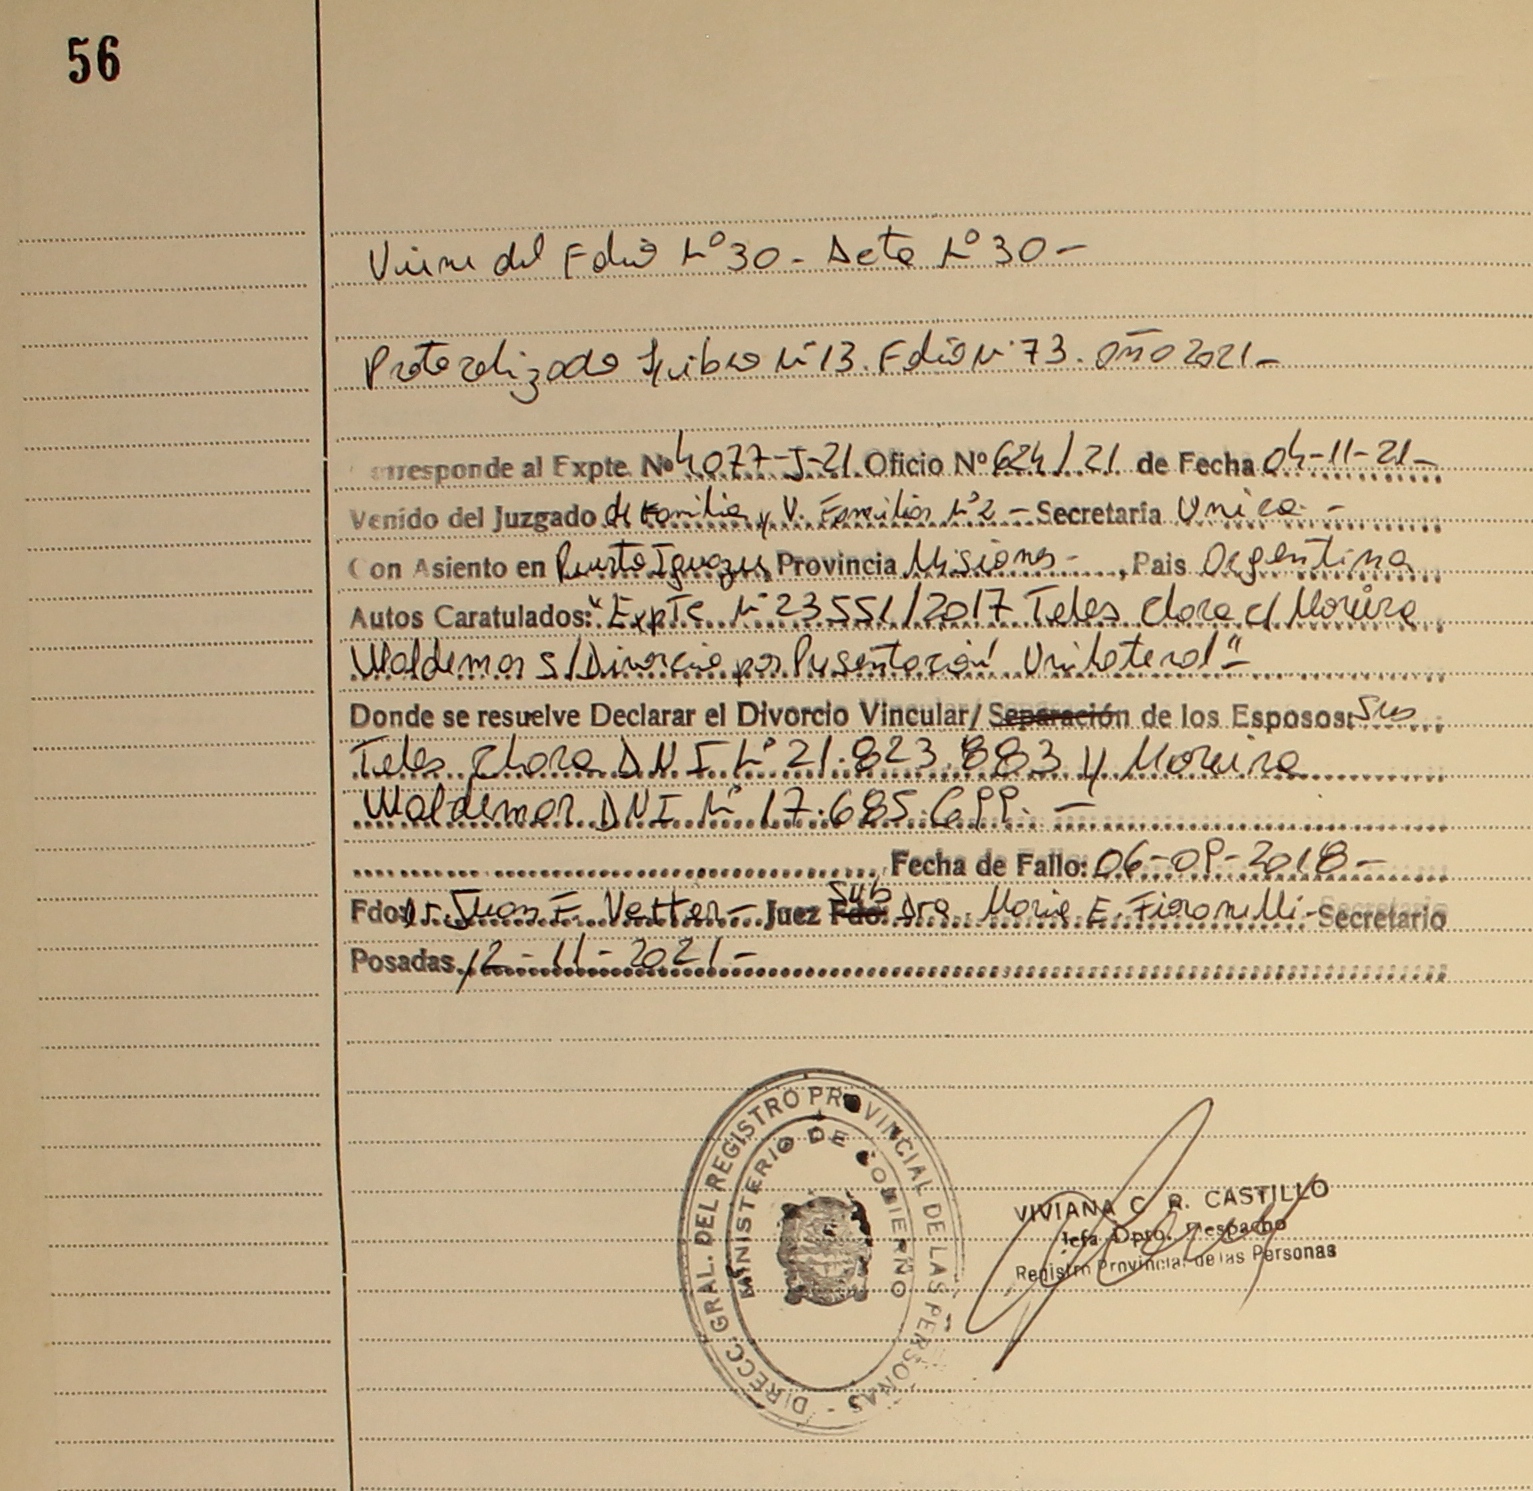 56
Viene del Folio Nº 30 - Acta Nº 30 -
Protocolizado Libro Nº 13. Folio Nº 73. Año 2021 -
Corresponde al Expte. Nº 4077-J-21. Oficio Nº 624/21 de Fecha 04-11-21 -
Venido del Juzgado de Familia y V. Familiar Nº 2 - Secretaria Unica -
Con Asiento en Puerto Iguazu, Provincia Misiones - , Pais Argentina
Autos Caratulados: "Expte. Nº 23551/2017 Teles Clara c/ Moreira
Waldemar S/ Divorcio por Presentación Unilateral" -
Donde se resuelve Declarar el Divorcio Vincular/ Separación de los Esposos: Sres
Teles Clara DNI Nº 21.823.883 y Moreira
Waldemar DNI Nº 17.685.699. -
, Fecha de Fallo: 06-09-2018 -
Fdo: Dr. Juan F. Vetter - Juez Fdo: Sub Dra. Maria E. Fioranelli - Secretario
Posadas, 12-11-2021 -
DIRECC. GRAL. DEL REGISTRO PROVINCIAL DE LAS PERSONAS -
MINISTERIO DE GOBIERNO
VIVIANA C. R. CASTILLO
Jefa Dpto. Despacho
Registro Provincial de las Personas